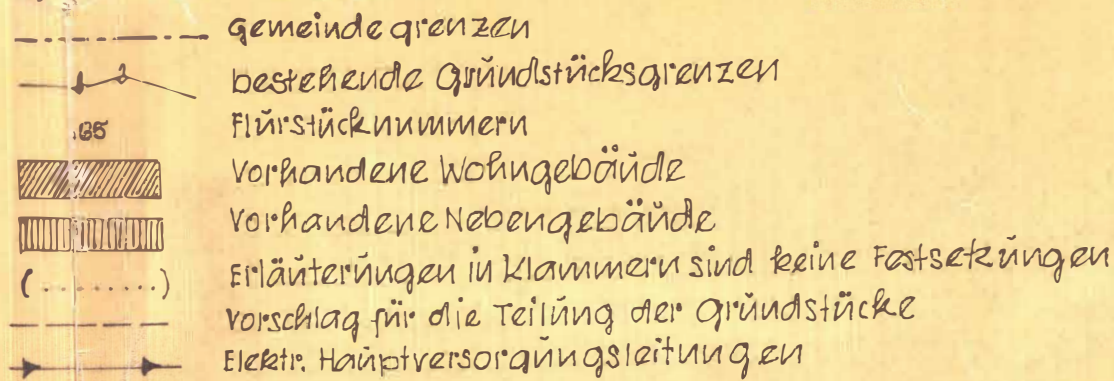 Gemeindegrenzen
bestehende Grundstücksgrenzen
65 Flurstücknummern
Vorhandene Wohngebäude
Vorhandene Nebengebäude
(........) Erläuterungen in Klammern sind keine Festsetzungen
Vorschlag für die Teilung der Grundstücke
Elektr. Hauptversorgungsleitungen